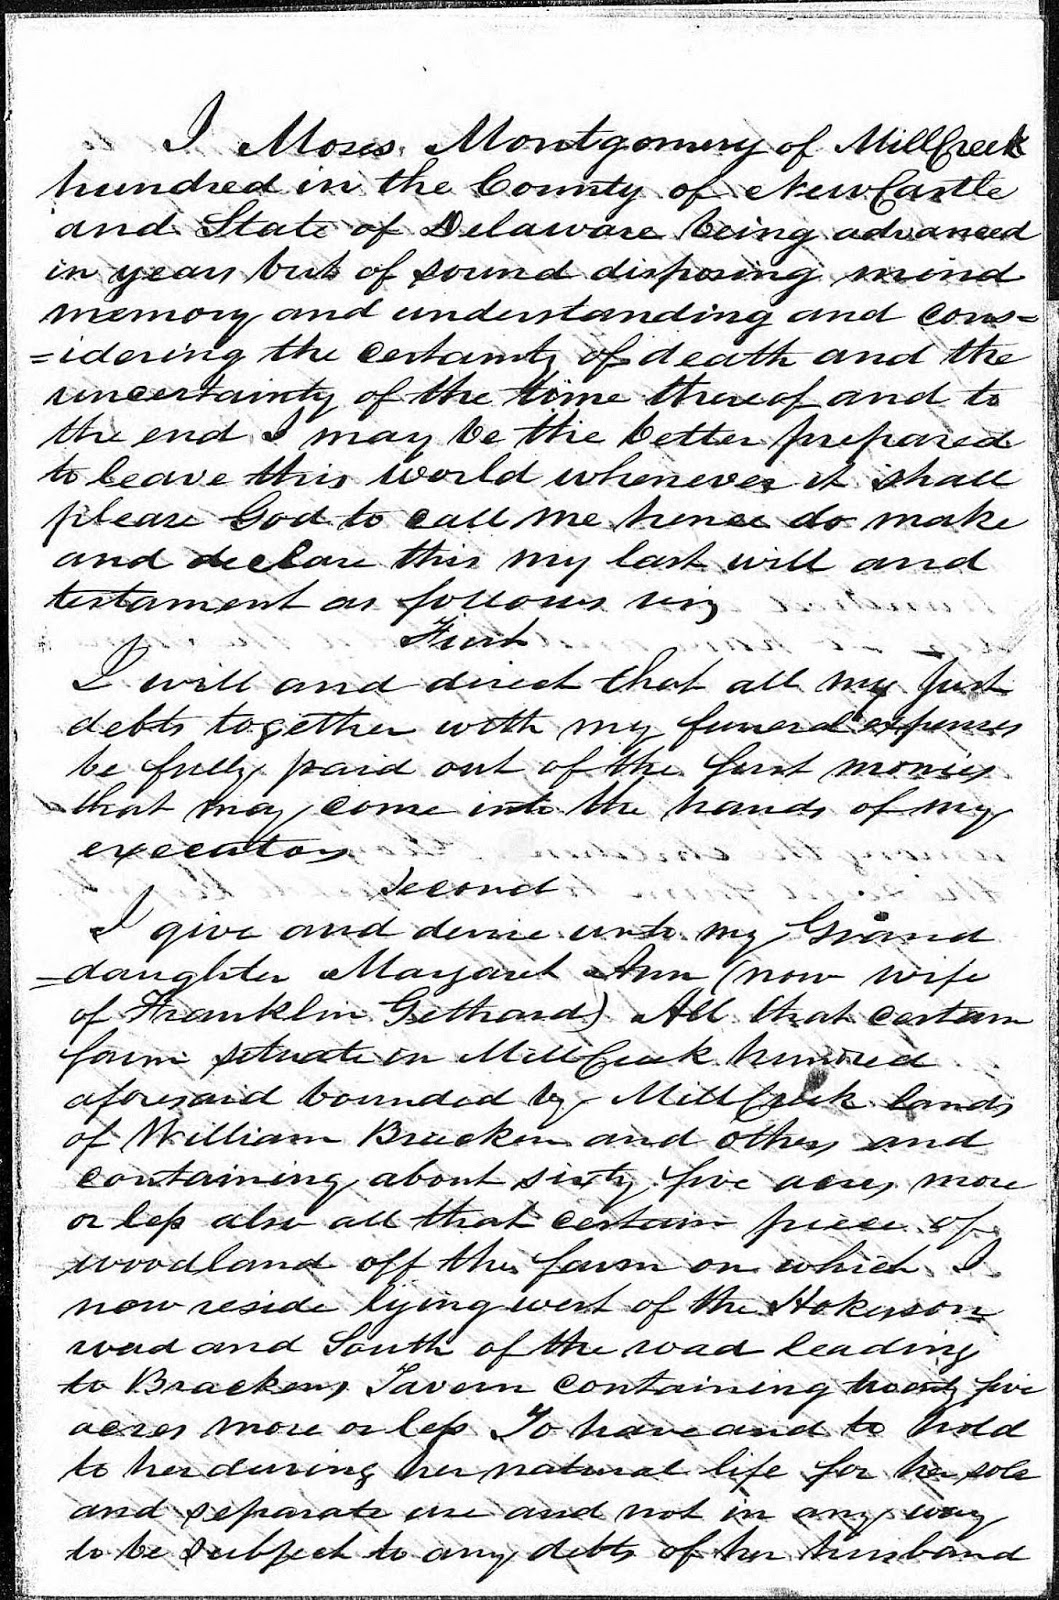 I Moses Montgomery of Mill Creek
hundred in the County of New Castle
and State of Delaware being advanced
in years but of sound disposing mind
memory and understanding and cons=
=idering the certainty of death and the
uncertainty of the time thereof and to
the end I may be the better prepared
to leave this world whenever it shall
please God to call me hence do make
and declare this my last will and
testament as follows viz
First
I will and direct that all my just
debts together with my funeral expenses
be fully paid out of the first monies
that may come into the hands of my
executors
Second
I give and devise unto my Grand
=daughter Margaret Ann (now wife
of Franklin Gethard) All that certain
farm situate in Mill Creek hundred
aforesaid bounded by Mill Creek lands
of William Bracken and others and
containing about sixty five acres more
or less also all that certain piece of
woodland off the farm on which I
now reside lying west of the Hokerson
road and South of the road leading
to Brackens Tavern containing twenty five
acres more or less To have and to hold
to her during her natural life for her sole
and separate use and not in any way
to be subject to any debts of her husband